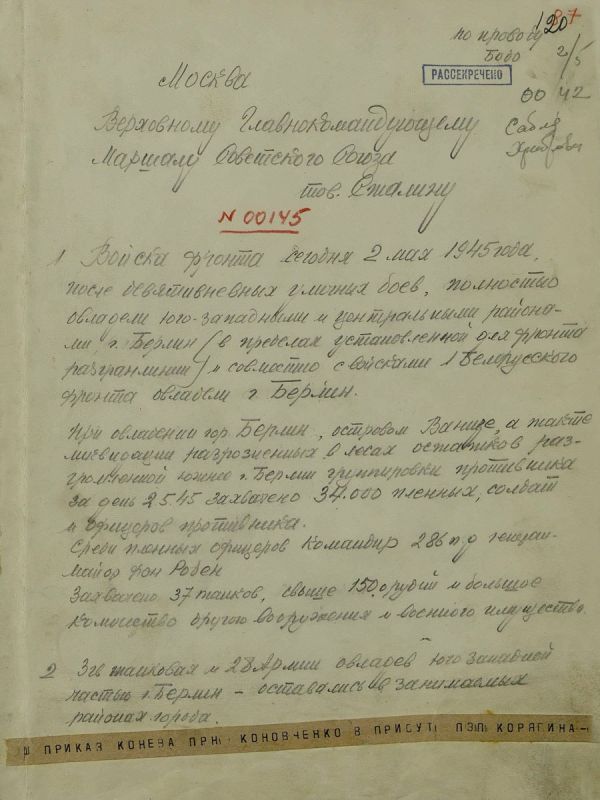 120
87
по проводу
Бодо
2/5
РАССЕКРЕЧЕНО
00 42
Москва
Верховному Главнокомандующему
Маршалу Советского Союза
тов. Сталину
N 00145
1 Войска фронта сегодня 2 мая 1945 года,
после девятидневных уличных боев, полностью
овладели юго-западными и центральными района-
ми г. Берлин (в пределах установленной для фронта
разгранлинии) и совместно с войсками 1 Белорусского
фронта овладели г. Берлин.
При овладении гор. Берлин, островом Ванзее, а также
ликвидации в лесах остатков раз-
громленной южнее г. Берлин группировки противника
за день 2.5.45 захвачено 34.000 пленных, солдат
и офицеров противника.
Среди пленных офицеров Командир 286 пд генерал-
майор фон Робен
Захвачено 37 танков, свыше 150 орудий и большое
количество другого вооружения и военного имущества.
2 3 гв танковая и 28 Армии овладев юго западной
частью г. Берлин – оставались в занимаемых
районах города.
ПРИКАЗ КОНЕВА ПРН КОНОВЧЕНКО В ПРИСУТ ПЭП КОРЯГИНА-